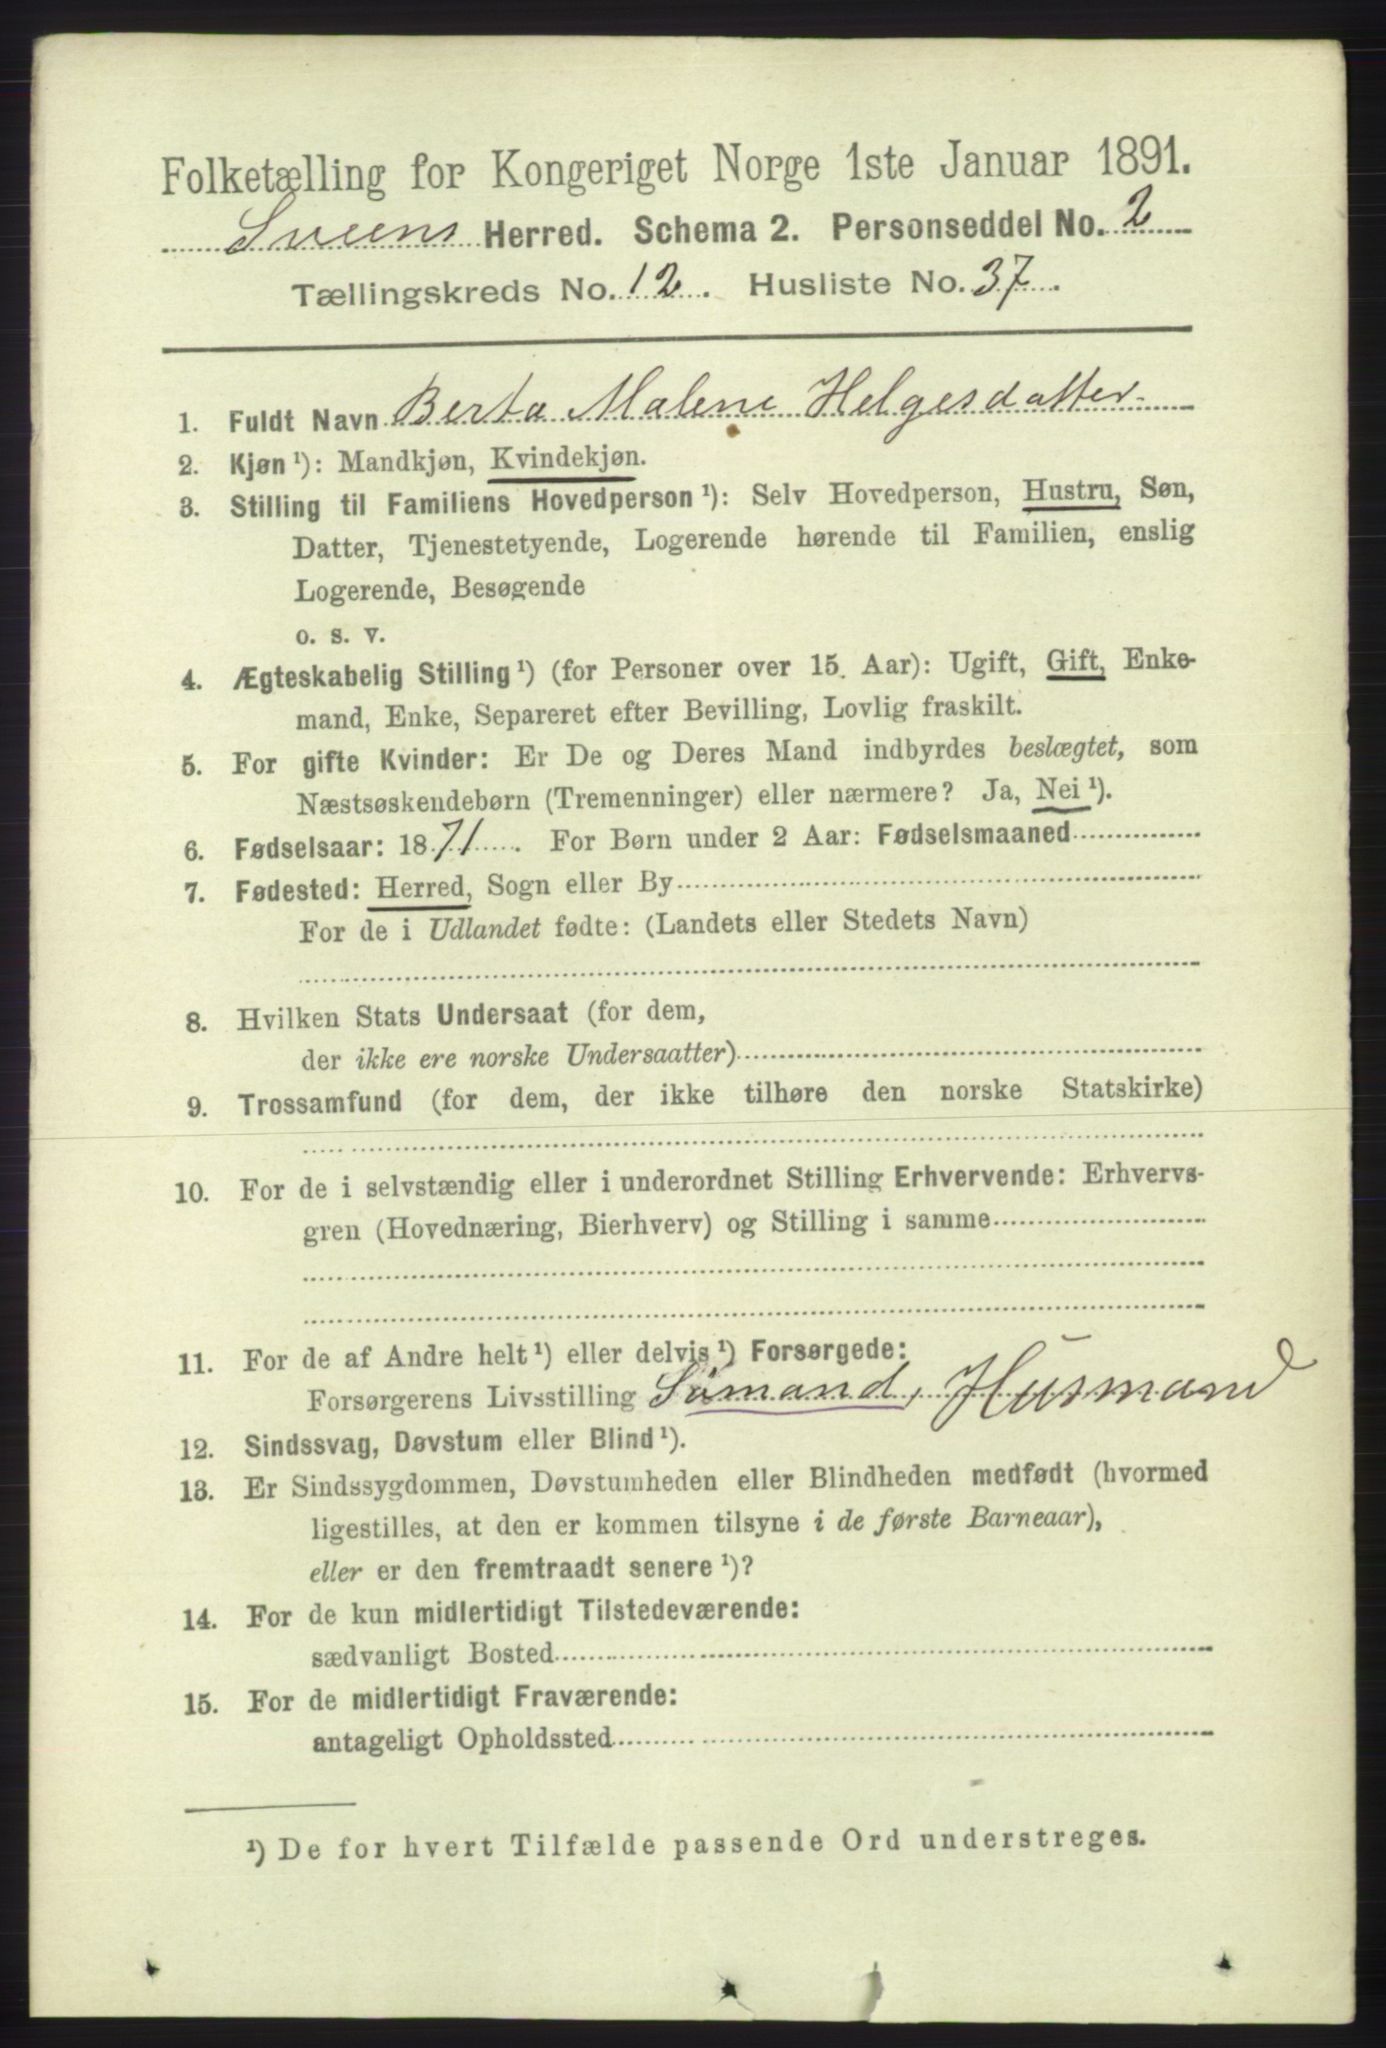 Folketælling for Kongeriget Norge 1ste Januar 1891.
Sveens Herred. Schema 2. Personseddel No. 2
Tællingskreds No. 12. Husliste No. 37.
1. Fuldt Navn Berta Malene Helgesdatter
2. Kjøn ¹): Mandkjøn, Kvindekjøn.
3. Stilling til Familiens Hovedperson ¹): Selv Hovedperson, Hustru, Søn,
Datter, Tjenestetyende, Logerende hørende til Familien, enslig
Logerende, Besøgende
o. s. v.
4. Ægteskabelig Stilling ¹) (for Personer over 15 Aar): Ugift, Gift, Enke-
mand, Enke, Separeret efter Bevilling, Lovlig fraskilt.
5. For gifte Kvinder: Er De og Deres Mand indbyrdes beslægtet, som
Næstsøskendebørn (Tremenninger) eller nærmere? Ja, Nei ¹).
6. Fødselsaar: 1871. For Børn under 2 Aar: Fødselsmaaned
7. Fødested: Herred, Sogn eller By
For de i Udlandet fødte: (Landets eller Stedets Navn)
8. Hvilken Stats Undersaat (for dem,
der ikke ere norske Undersaatter)
9. Trossamfund (for dem, der ikke tilhøre den norske Statskirke)
10. For de i selvstændig eller i underordnet Stilling Erhvervende: Erhvervs-
gren (Hovednæring, Bierhverv) og Stilling i samme
11. For de af Andre helt ¹) eller delvis ¹) Forsørgede:
Forsørgerens Livsstilling Sømand, Husmand
12. Sindssvag, Døvstum eller Blind ¹).
13. Er Sindssygdommen, Døvstumheden eller Blindheden medfødt (hvormed
ligestilles, at den er kommen tilsyne i de første Barneaar),
eller er den fremtraadt senere ¹)?
14. For de kun midlertidigt Tilstedeværende:
sædvanligt Bosted
15. For de midlertidigt Fraværende:
antageligt Opholdssted
¹) De for hvert Tilfælde passende Ord understreges.